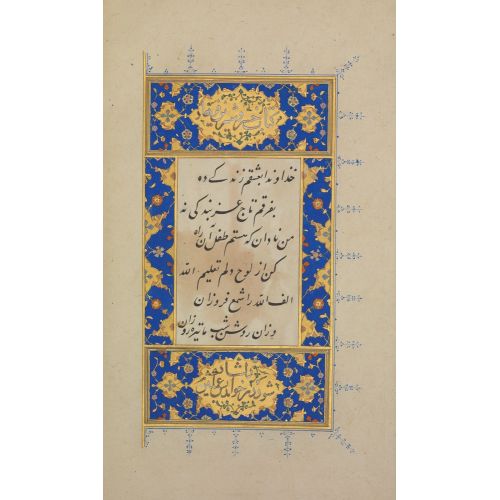 خداوندا بعشقم زندگی ده
بفرقم تاج عز بندگی نه
من نادان که هستم طفل آن راه
کن از لوح دلم تعلیم الله
الف الله را شمع فروزان
وزان روشن شب ما تیره روزان